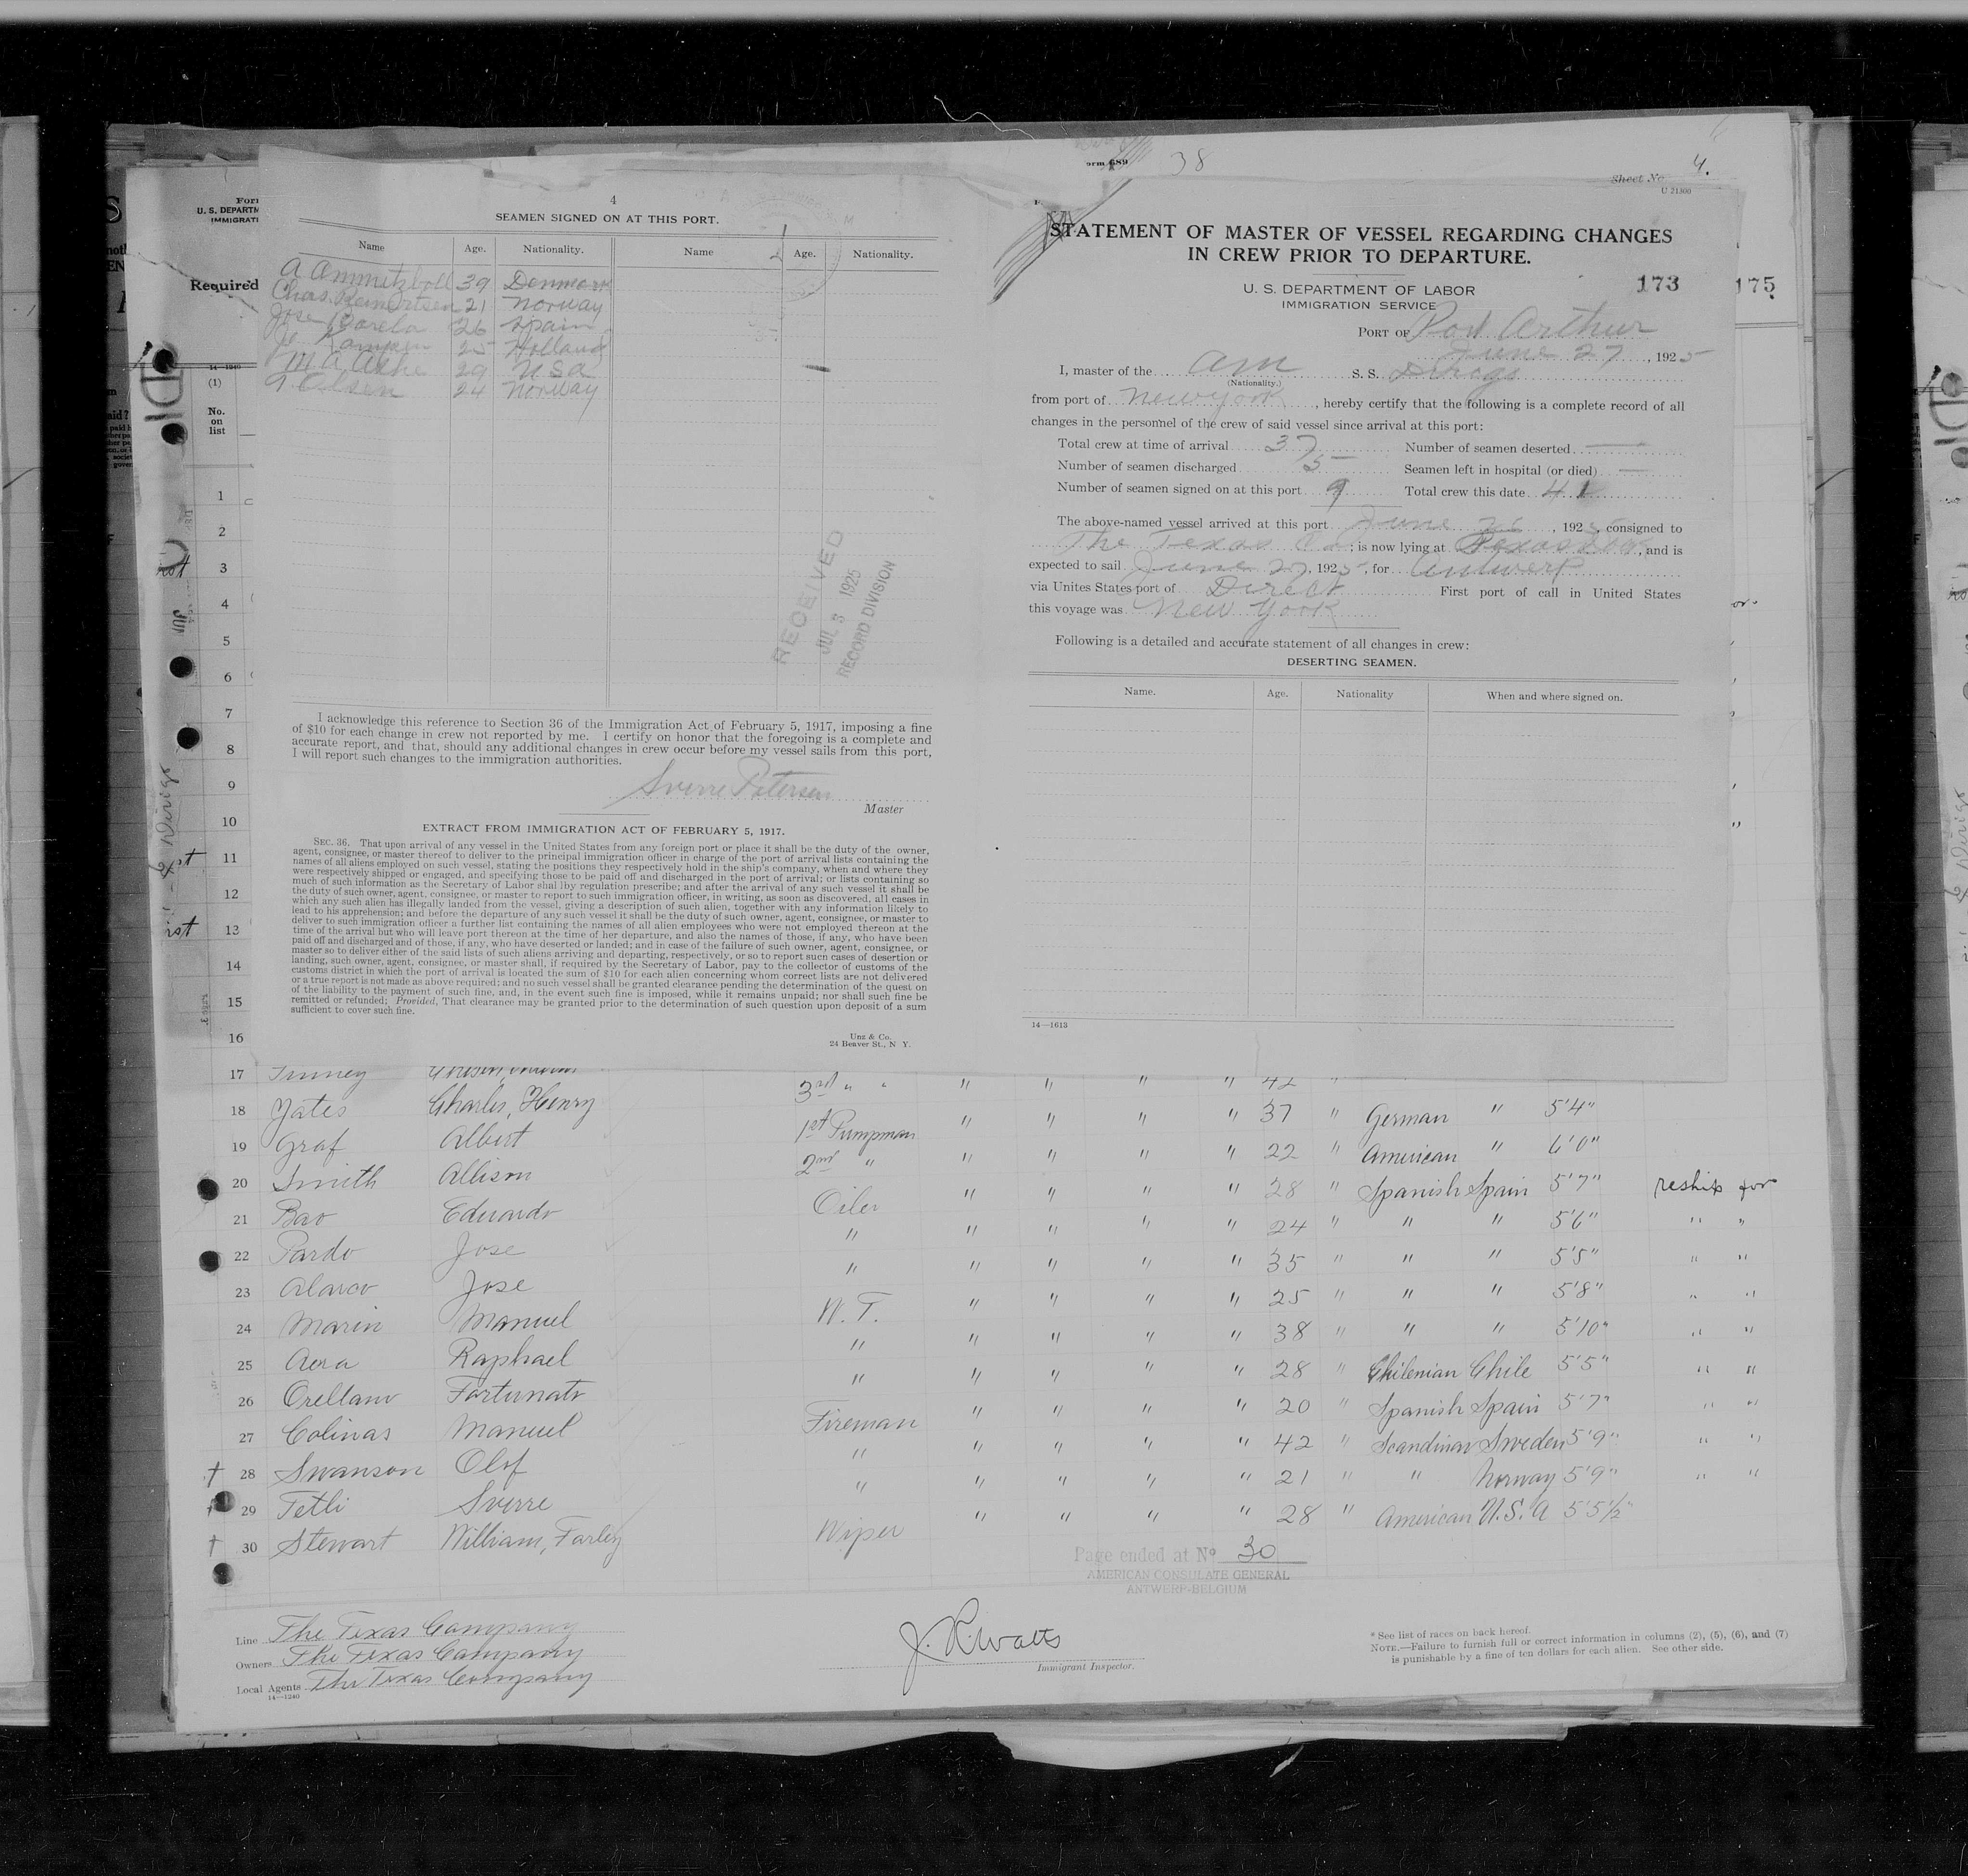 4
SEAMEN SIGNED ON AT THIS PORT.
Name Age. Nationality. Name Age. Nationality.
A Ammitzboll 39 Denmark
Chas. Reinertsen 21 Norway
Jose Varela 26 Spain
25 Holland
M A 29 U S a
Olsen 24 Norway
RECEIVED
JUL 3 1925
RECORD DIVISION
I acknowledge this reference to Section 36 of the Immigration Act of February 5, 1917, imposing a fine
of $10 for each change in crew not reported by me. I certify on honor that the foregoing is a complete and
accurate report, and that, should any additional changes in crew occur before my vessel sails from this port,
I will report such changes to the immigration authorities.
Sverre Petersen
Master
EXTRACT FROM IMMIGRATION ACT OF FEBRUARY 5, 1917.
SEC. 36. That upon arrival of any vessel in the United States from any foreign port or place it shall be the duty of the owner,
agent, consignee, or master thereof to deliver to the principal immigration officer in charge of the port of arrival lists containing the
names of all aliens employed on such vessel, stating the positions they respectively hold in the ship's company, when and where they
were respectively shipped or engaged, and specifying those to be paid off and discharged in the port of arrival; or lists containing so
much of such information as the Secretary of Labor shal lby regulation prescribe; and after the arrival of any such vessel it shall be
the duty of such owner, agent, consignee, or master to report to such immigration officer, in writing, as soon as discovered, all cases in
which any such alien has illegally landed from the vessel, giving a description of such alien, together with any information likely to
lead to his apprehension; and before the departure of any such vessel it shall be the duty of such owner, agent, consignee, or master to
deliver to such immigration officer a further list containing the names of all alien employees who were not employed thereon at the
time of the arrival but who will leave port thereon at the time of her departure, and also the names of those, if any, who have been
paid off and discharged and of those, if any, who have deserted or landed; and in case of the failure of such owner, agent, consignee, or
master so to deliver either of the said lists of such aliens arriving and departing, respectively, or so to report such cases of desertion or
landing, such owner, agent, consignee, or master shall, if required by the Secretary of Labor, pay to the collector of customs of the
customs district in which the port of arrival is located the sum of $10 for each alien concerning whom correct lists are not delivered
or a true report is not made as above required; and no such vessel shall be granted clearance pending the determination of the quest on
of the liability to the payment of such fine, and, in the event such fine is imposed, while it remains unpaid; nor shall such fine be
remitted or refunded; Provided, That clearance may be granted prior to the determination of such question upon deposit of a sum
sufficient to cover such fine.
Unz & Co.
24 Beaver St., N Y.
orm 689 38 Sheet No 4.
U 21300
STATEMENT OF MASTER OF VESSEL REGARDING CHANGES
IN CREW PRIOR TO DEPARTURE.
U. S. DEPARTMENT OF LABOR 173 175
IMMIGRATION SERVICE
PORT OF Port Arthur
June 27, 1925
I, master of the Am S. S. Dirigo
(Nationality.)
from port of New york, hereby certify that the following is a complete record of all
changes in the personnel of the crew of said vessel since arrival at this port:
Total crew at time of arrival 37 Number of seamen deserted —
Number of seamen discharged 5 Seamen left in hospital (or died) —
Number of seamen signed on at this port 9 Total crew this date 41
The above-named vessel arrived at this port June 26, 1925, consigned to
The Texas Co; is now lying at Texas Dock, and is
expected to sail June 27, 1925, for Antwerp
via Unites States port of Direct First port of call in United States
this voyage was New York
Following is a detailed and accurate statement of all changes in crew:
DESERTING SEAMEN.
Name. Age. Nationality When and where signed on.
14—1613
Form
U. S. DEPARTM
IMMIGRATI
Required
14—1240
(1)
No.
on
list
1
2
3
4
5
6
7
8
9
10
11
12
13
14
15
16
17 Tinney 3rd " " " " " " 42 "
18 Yates Charles, Henry 1st Pumpman " " " " 37 " German " 5'4"
19 Graf Albert 2nd " " " " " 22 " American " 6'0"
20 Smith Allison Oiler " " " " 28 " Spanish Spain 5'7" reship for
21 Bao Eduardo " " " " " 24 " " " 5'6" " "
22 Pardo Jose " " " " " 35 " " " 5'5" " "
23 Alarco Jose W. T. " " " " 25 " " " 5'8" " "
24 Marin Manuel " " " " " 38 " " " 5'10" " "
25 Aera Raphael " " " " " 28 " Chilenian Chile 5'5" " "
26 Orellano Fortunato Fireman " " " " 20 " Spanish Spain 5'7" " "
27 Colinas Manuel " " " " " 42 " Scandinav Sweden 5'9" " "
† 28 Swanson Olof " " " " " 21 " " Norway 5'9" " "
† 29 Tetli Sverre Wiper " " " " 28 " American U.S.A 5'5½"
† 30 Stewart William, Farley
Page ended at No 30
AMERICAN CONSULATE GENERAL
ANTWERP-BELGIUM
Line The Texas Company
Owners The Texas Company
Local Agents The Texas Company
14—1240
J. R. Watts
Immigrant Inspector.
* See list of races on back hereof.
NOTE.—Failure to furnish full or correct information in columns (2), (5), (6), and (7)
is punishable by a fine of ten dollars for each alien. See other side.